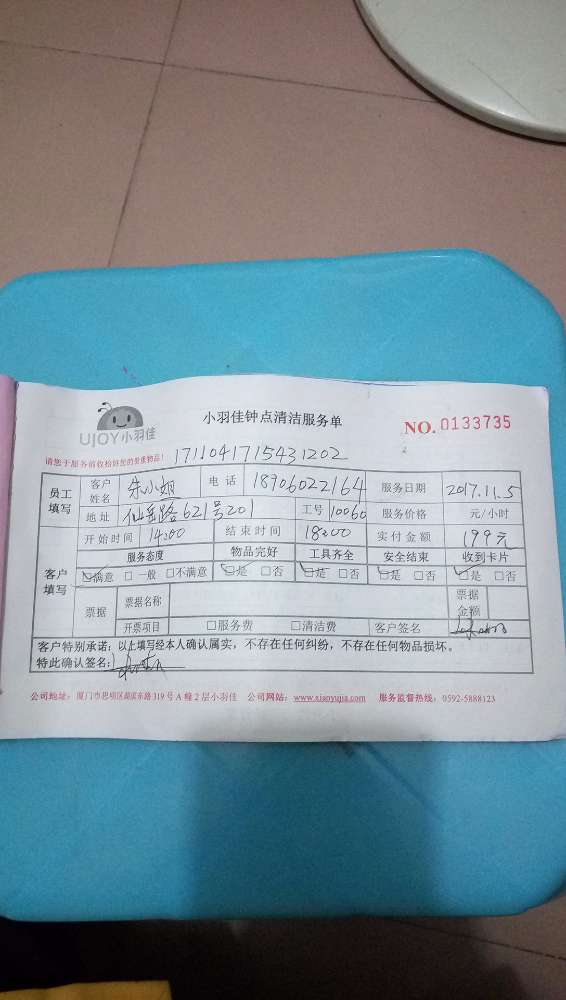 UJOY小羽佳
小羽佳钟点清洁服务单
NO. 0133735
请您于服务前收拾好您的贵重物品!
1711041715431202
员工填写 客户姓名 朱小姐 电话 18906022164 服务日期 2017.11.5
地址 仙岳路621号201 工号 10060 服务价格 元/小时
客户填写 开始时间 14:00 结束时间 18:00 实付金额 199元
服务态度 物品完好 工具齐全 安全结束 收到卡片
☑满意 □一般 □不满意 ☑是 □否 ☑是 □否 ☑是 □否 ☑是 □否
票据 票据名称 票据金额
开票项目 □服务费 □清洁费 客户签名
客户特别承诺:以上填写经本人确认属实,不存在任何纠纷,不存在任何物品损坏。
特此确认签名:
公司地址:厦门市思明区湖滨东路319号A幢2层小羽佳 公司网站:www.xiaoyujia.com 服务监督热线:0592-5888123